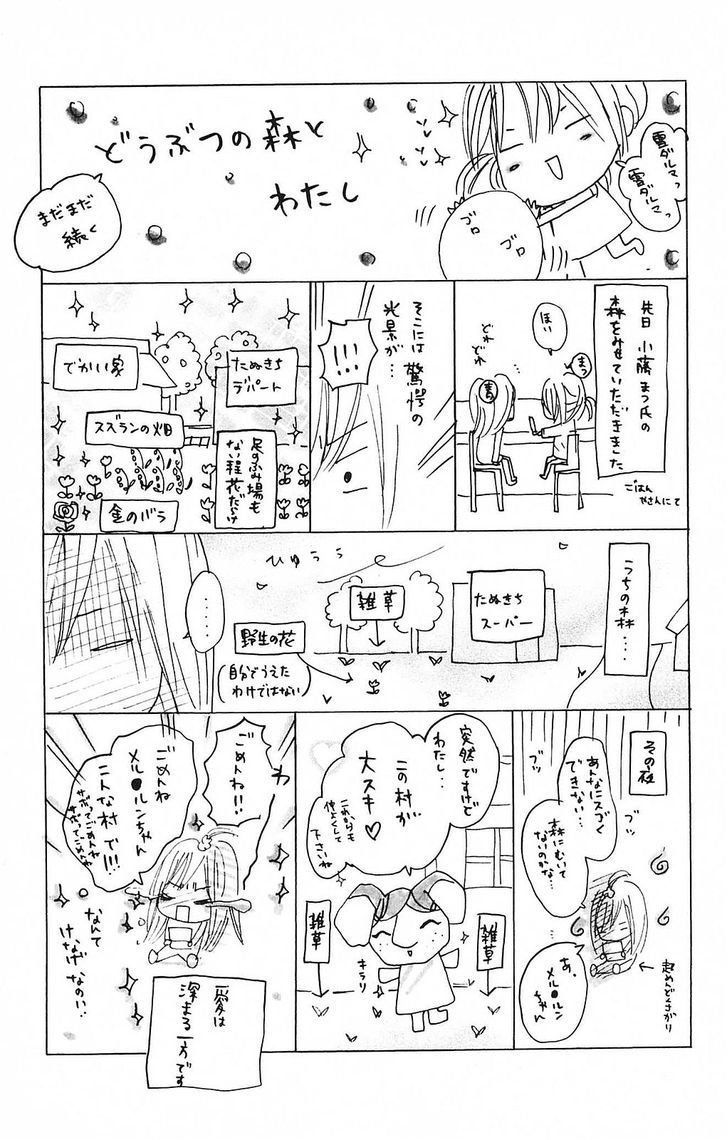 どうぶつの森と
わたし
雪ダルマっ
雪ダルマっ
ゴロ
ゴロ
まだまだ
続く
先日 小藤まつ氏の
森をみせていただきました
ごはん
やさんにて
まつ
ほい
どれ
どれ
そこには驚愕の
光景が…
!!!
たぬきち
デパート
でかい家
スズランの畑
足のふみ場も
ない程花だらけ
金のバラ
うちの森…
たぬきち
スーパー
雑草
ひゅうぅぅ
野生の花
(自分でうえた
わけではない)
・・・・
その夜
あんなにスゴく
できない…
森にむいて
ないのかな…
ブツ
ブツ
あ、
メル●ルン
ちゃん
超めんどくさがり
突然ですけど
わたし・・
この村が
大スキ♡
これからも
仲よくして
下さいね
雑草
雑草
キラリ
わ
ごめんね!!
ごめんね
メル●ルンちゃん
こんな村で!!!
サボっててごめんね
サボっててごめんね
なんて
けなげなの!!
愛は
深まる一方です